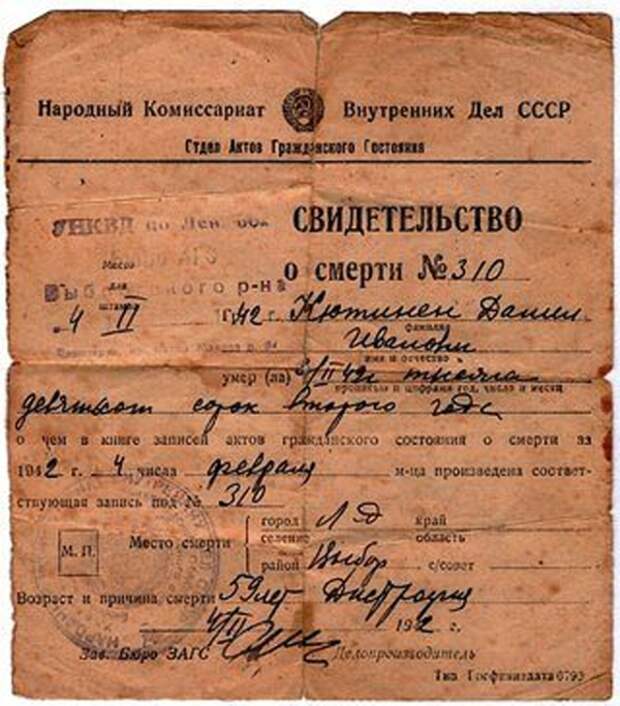 Народный Комиссариат Внутренних Дел СССР
Отдел Актов Гражданского Состояния
УНКВД по Лен. обл
СВИДЕТЕЛЬСТВО
о смерти №310
Место
для
штампа
р-на
4 II 1942 г.
Кютинен Данил
фамилия
Иванович
имя и отчество
умер (ла) 3/II 42г тысяча
прописью и цифрами год, число и месяц
девятьсот сорок второго года
о чем в книге записей актов гражданского состояния о смерти за
1942 г. 4 числа февраля м-ца произведена соответ-
ствующая запись под № 310
Место смерти
город Л-д край
селение область
район Выбор с/совет
М. П.
Возраст и причина смерти 59 лет Дистрофия
4/II 1942 г.
Зав. Бюро ЗАГС Делопроизводитель
Тип Госфиниздата 6793